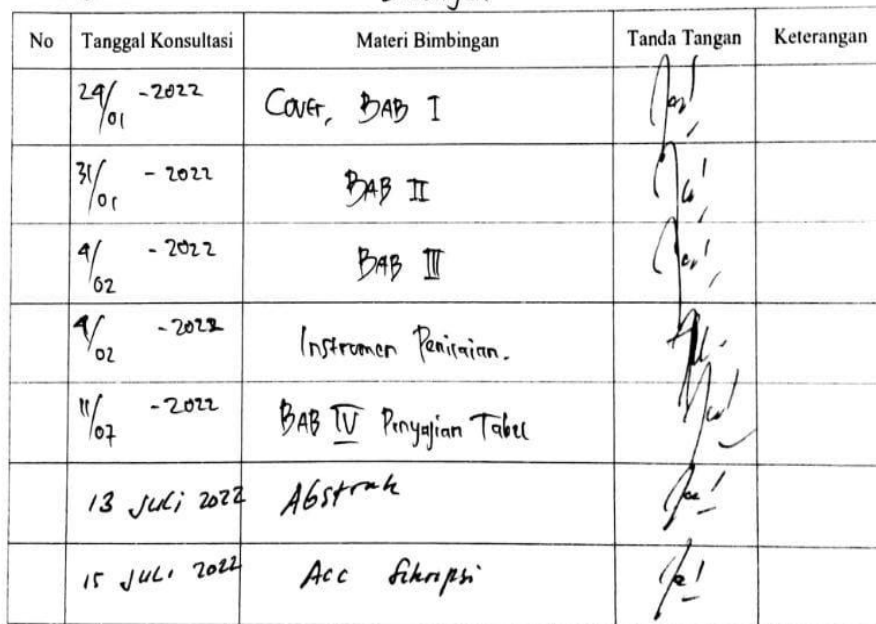 No Tanggal Konsultasi Materi Bimbingan Tanda Tangan Keterangan
24/01 - 2022 Cover, BAB I
31/01 - 2022 BAB II
4/02 - 2022 BAB III
4/02 - 2022 Instrumen Penilaian.
11/07 - 2022 BAB IV Penyajian Tabel
13 Juli 2022 Abstrak
15 Juli 2022 Acc Sikripsi